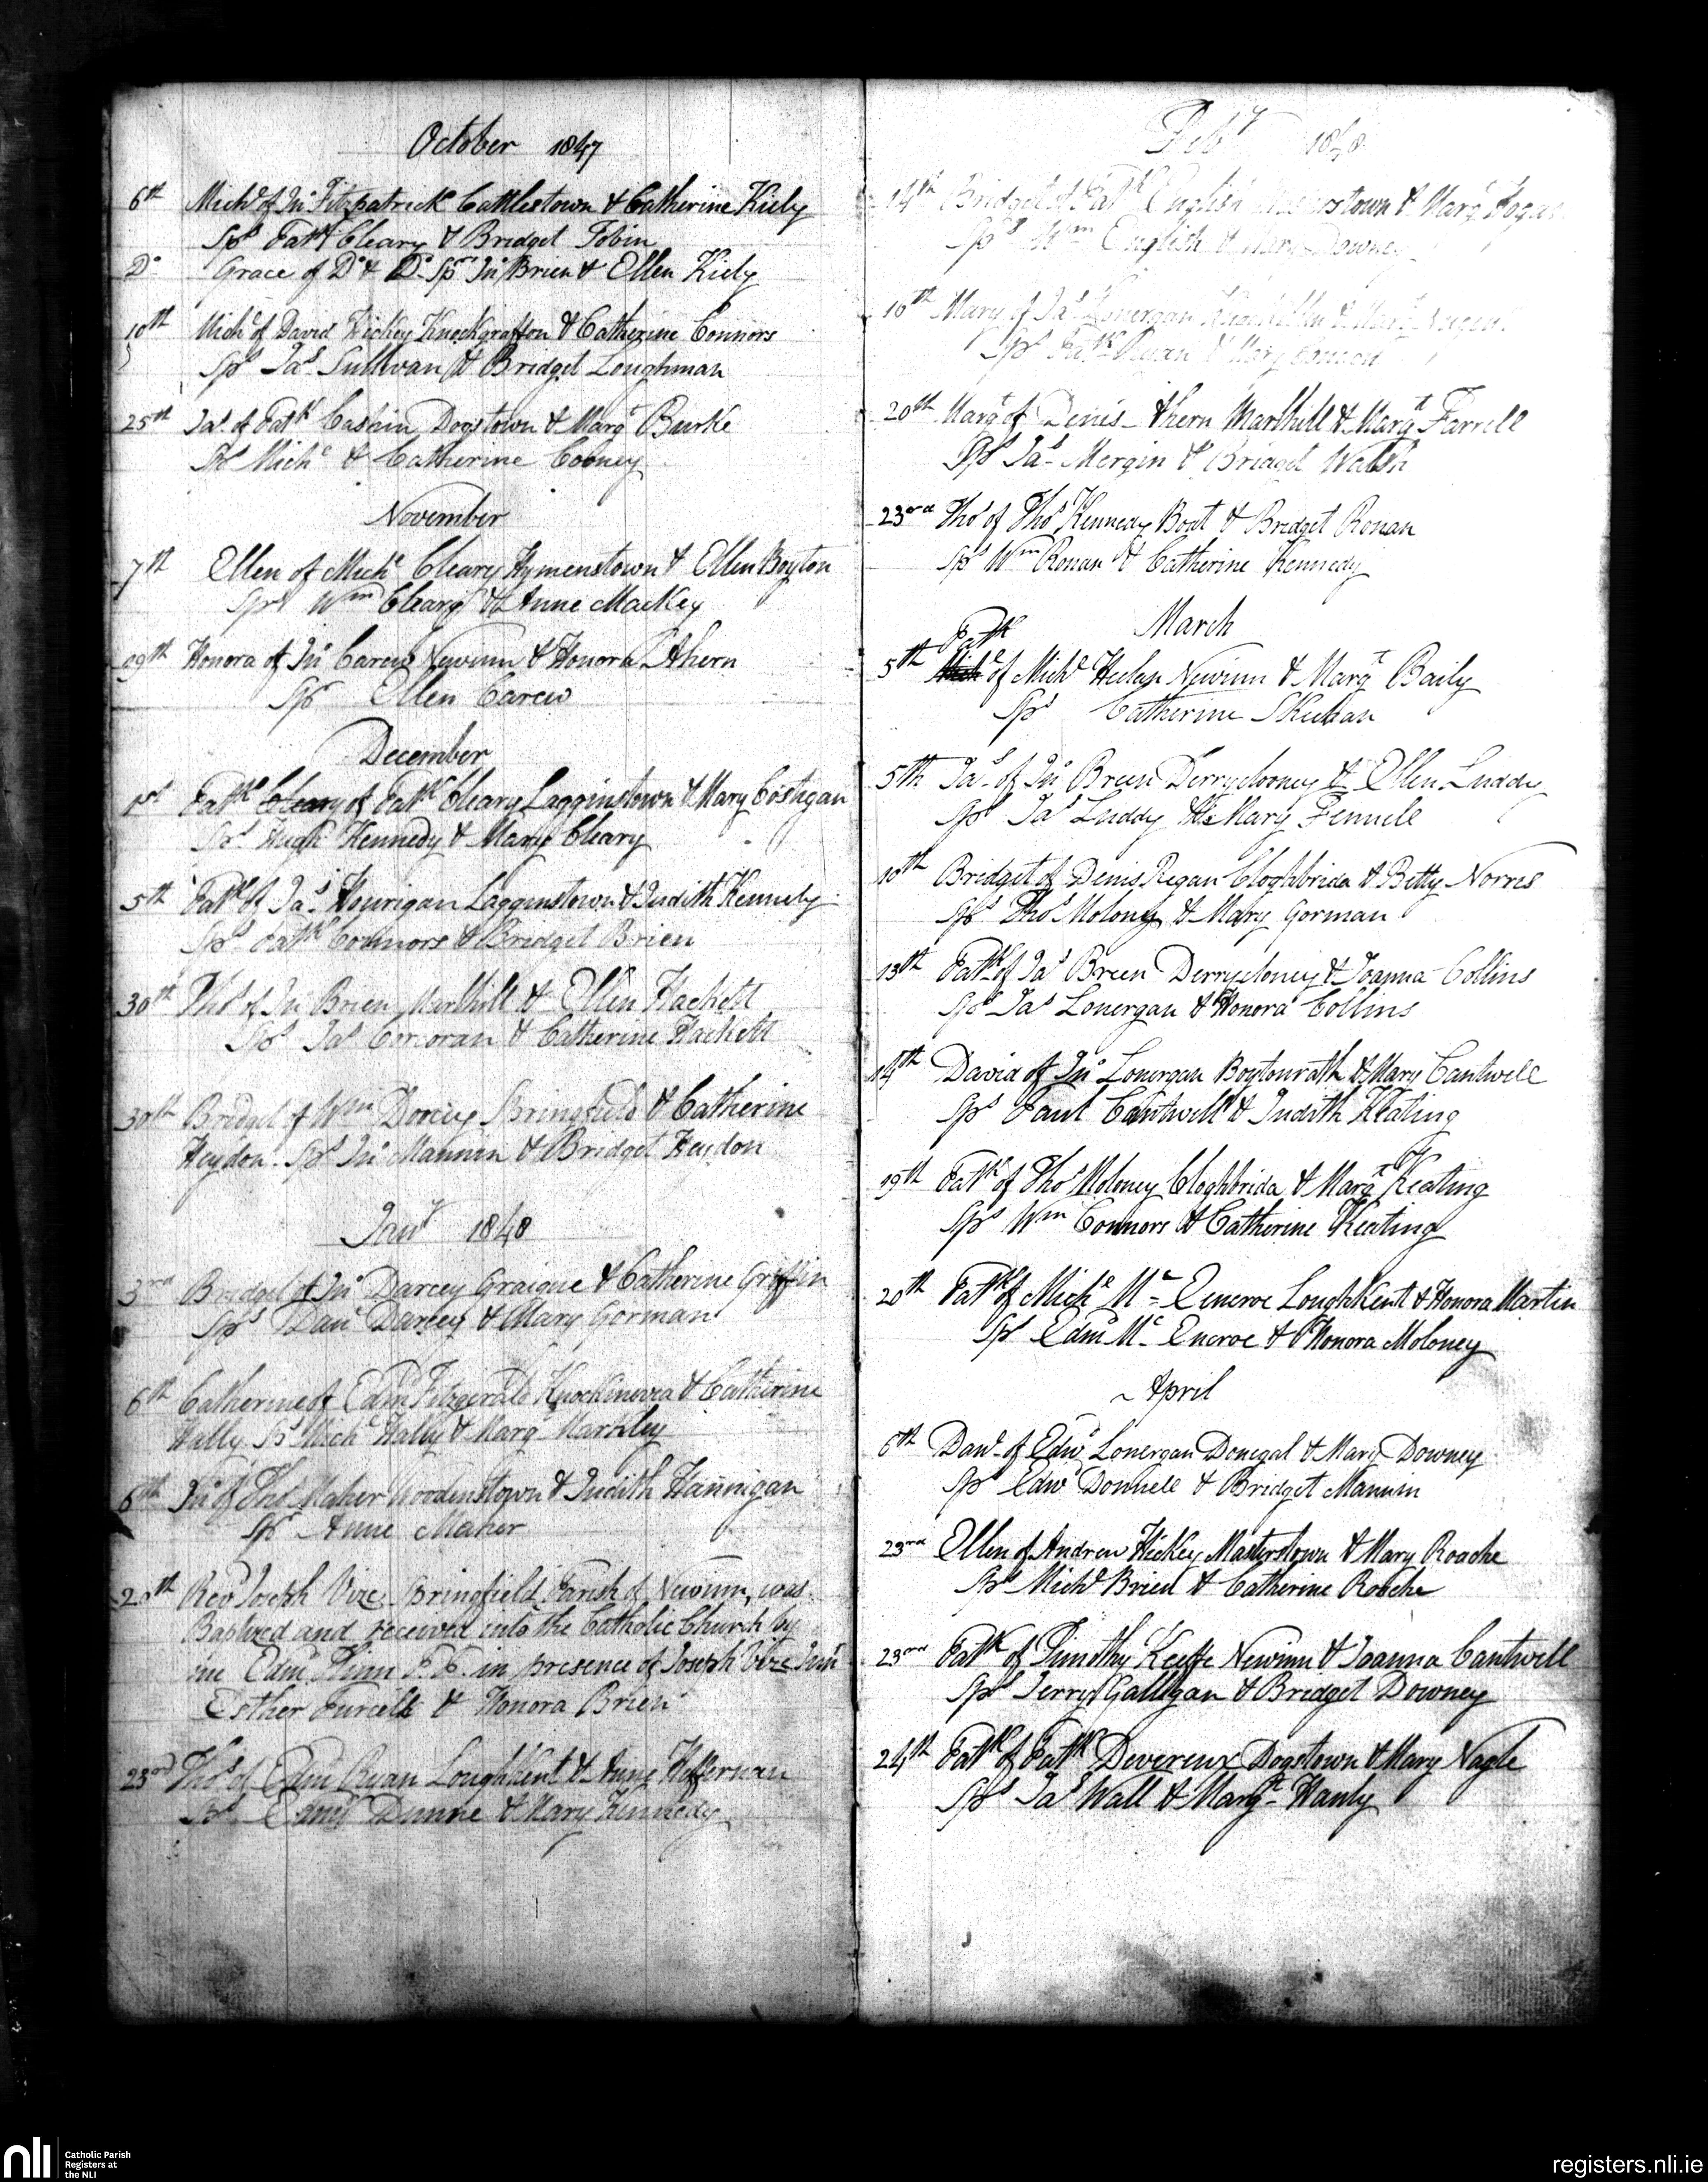 October 1847
6th Michl of Jno Fitzpatrick Cattlestown & Catherine Kiely
Sps Patk Cleary & Bridget Tobin
Do Grace of Do & Do Sps Jno Brien & Ellen Kiely
10th Michl of David Hickey Knockgraffon & Catherine Connors
Sps Jas Sullivan & Bridget Loughman
25th Jas of Patk Cashin Dogstown & Margt Burke
Sps Michl & Catherine Cooney
November
7th Ellen of Michl Cleary Hymenstown & Ellen Boyton
Sps Wm Cleary & Anne Mackey
Honora of Jno Carew Newinn & Honora Ahern
Sps Ellen Carew
December
1st Patk Cleary of Patk Cleary Lagginstown & Mary Costigan
Sps Hugh Kennedy & Mary Cleary
5th Patk of Jas Hourigan Lagginstown & Judith Kennedy
Sps Patk Connors & Bridget Brien
30th Thos of Jno Brien Marlhill & Ellen Hackett
Sps Jas Corcoran & Catherine Hackett
30th Bridget of Wm Dorcey Springfield & Catherine
Heydon. Sps Jno Mannin & Bridget Heydon
Jany 1848
3rd Bridget of Jno Darcey Graigue & Catherine Griffin
Sps Danl Darcey & Mary Gorman
6th Catherine of Edmd Fitzgerald & Catherine
Hally Sps Michl Hally & Margt
6th Jno of Thos Maher Woodinstown & Judith Hannigan
Sps Anne Maher
20th Revd Joseph Vize Springfield Parish of Newinn, was
Baptized and received into the Catholic Church by
me Edmd P.P. in presence of Joseph Vize Junr
Esther Purcell & Honora Brien
23rd Thos of Edm Ryan Loughkent & Anne Heffernan
Sps Edmd Dunne & Mary Kennedy
Feby 1848
14th Bridget of Patk English & Margt Hogan
Sps Wm English & Mary Downey
16th Mary of Jas Lonergan & Margt Nugent
Sps Patk Ryan & Mary
20th Margt of Denis Ahern Marlhill & Margt Farrell
Sps Jas Mergin & Bridget Walsh
23rd Thos of Thos Kennedy Boat & Bridget Ronan
Sps Wm Ronan & Catherine Kennedy
March
Patk
5th of Michl Heelan Newinn & Margt Baily
Sps Catherine Skeehan
5th Jas of Jno Breen Derryclooney & Ellen Luddy
Sps Jas Luddy & Mary Fennell
10th Bridget of Denis Regan Cloghbrida & Betty Norris
Sps Thos Molony & Mary Gorman
13th Patk of Jas Breen Derrycloney & Joanna Collins
Sps Jas Lonergan & Honora Collins
14th David of Jno Lonergan Boytonrath & Mary Cantwell
Sps Paul Cantwell & Judith Keating
19th Patk of Thos Moloney Cloghbrida & Margt Keating
Sps Wm Connors & Catherine Keating
20th Patk of Michl Mc Encroe Loughkent & Honora Martin
Sps Edmd Mc Encroe & Honora Moloney
April
6th Danl of Edwd Lonergan Donegal & Mary Downey
Sps Edwd Donnell & Bridget Mannin
23rd Ellen of Andrew Hickey Masterstown & Mary Roache
Sps Michl Brien & Catherine Roache
23rd Patk of Timothy Keeffe Newinn & Joanna Cantwell
Sps Jerry Galligan & Bridget Downey
24th Patk of Patk Devereux Dogstown & Mary Nagle
Sps Jas Wall & Margt Hanly
nli
Catholic Parish
Registers at
the NLI
registers.nli.ie